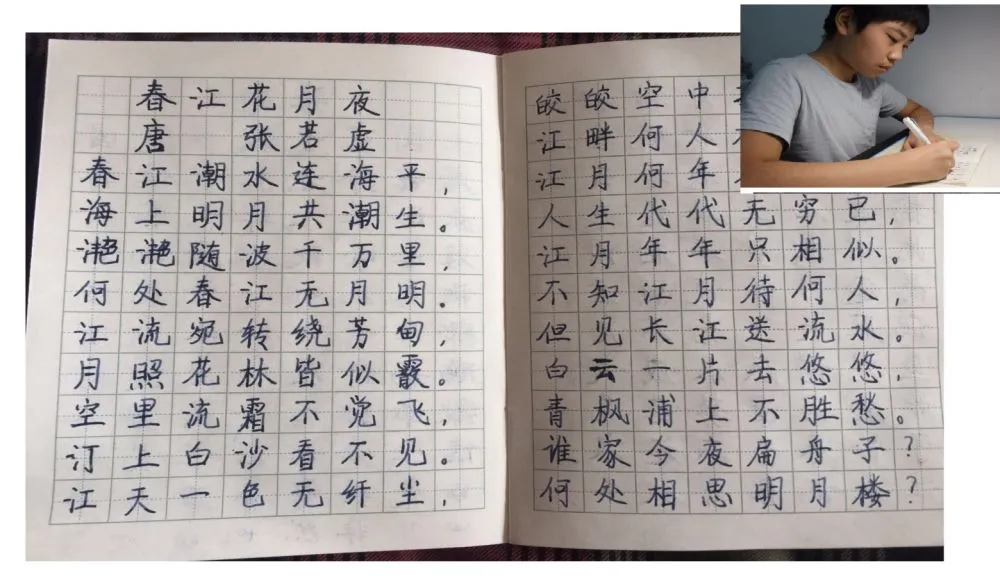 春江花月夜
唐 张若虚
春江潮水连海平，
海上明月共潮生。
滟滟随波千万里，
何处春江无月明。
江流宛转绕芳甸，
月照花林皆似霰。
空里流霜不觉飞，
汀上白沙看不见。
江天一色无纤尘，
皎皎空中
江畔何人
江月何年
人生代代无穷已，
江月年年只相似。
不知江月待何人，
但见长江送流水。
白云一片去悠悠，
青枫浦上不胜愁。
谁家今夜扁舟子？
何处相思明月楼？